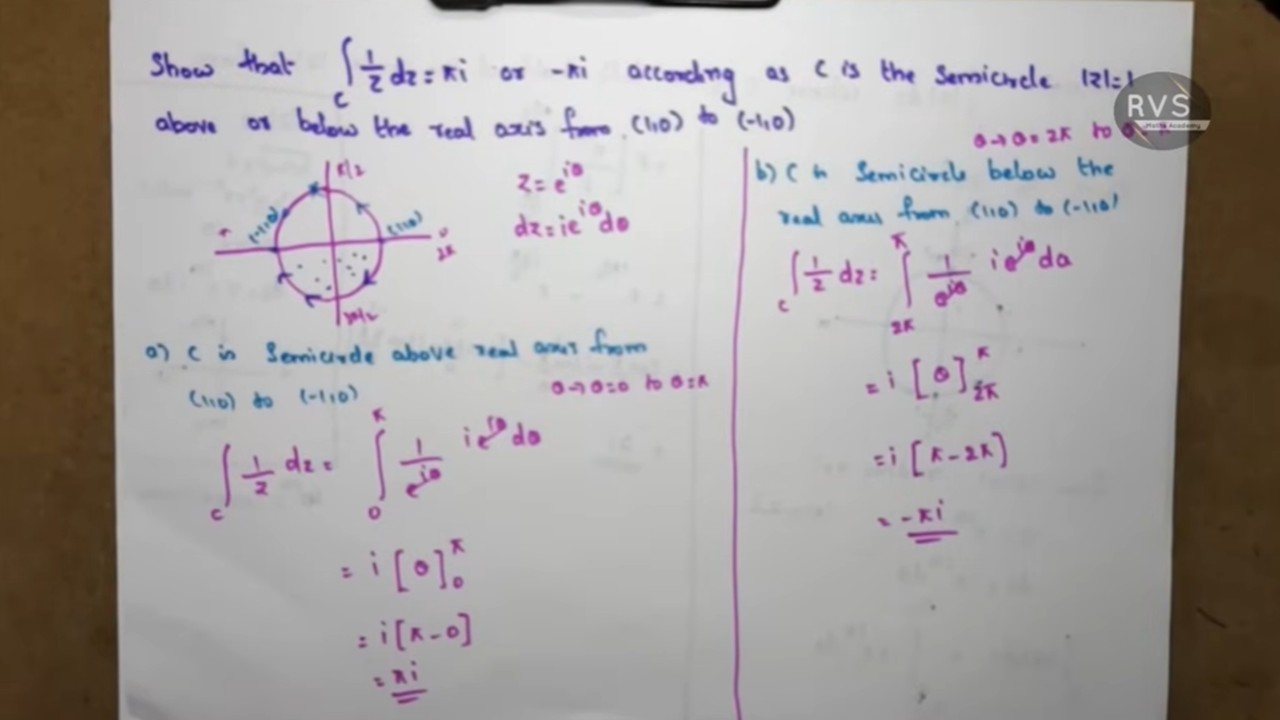 Show that ∫_C 1/z dz = πi or -πi according as C is the Semicircle |z|=1
above or below the real axis from (1,0) to (-1,0)
RVS
Maths Academy
π/2
(-1,0)
(1,0)
π
0
2π
3π/2
z = e^{iθ}
dz = ie^{iθ}dθ
a) C is Semicircle above real axis from
(1,0) to (-1,0)
θ → θ=0 to θ=π
∫_C 1/z dz = ∫_0^π 1/e^{iθ} ie^{iθ}dθ
= i [θ]_0^π
= i[π-0]
= πi
θ → θ = 2π to θ = π
b) C is Semicircle below the
real axis from (1,0) to (-1,0)
∫_C 1/z dz = ∫_{2π}^π 1/e^{iθ} ie^{iθ}dθ
= i [θ]_{2π}^π
= i [π-2π]
= -πi